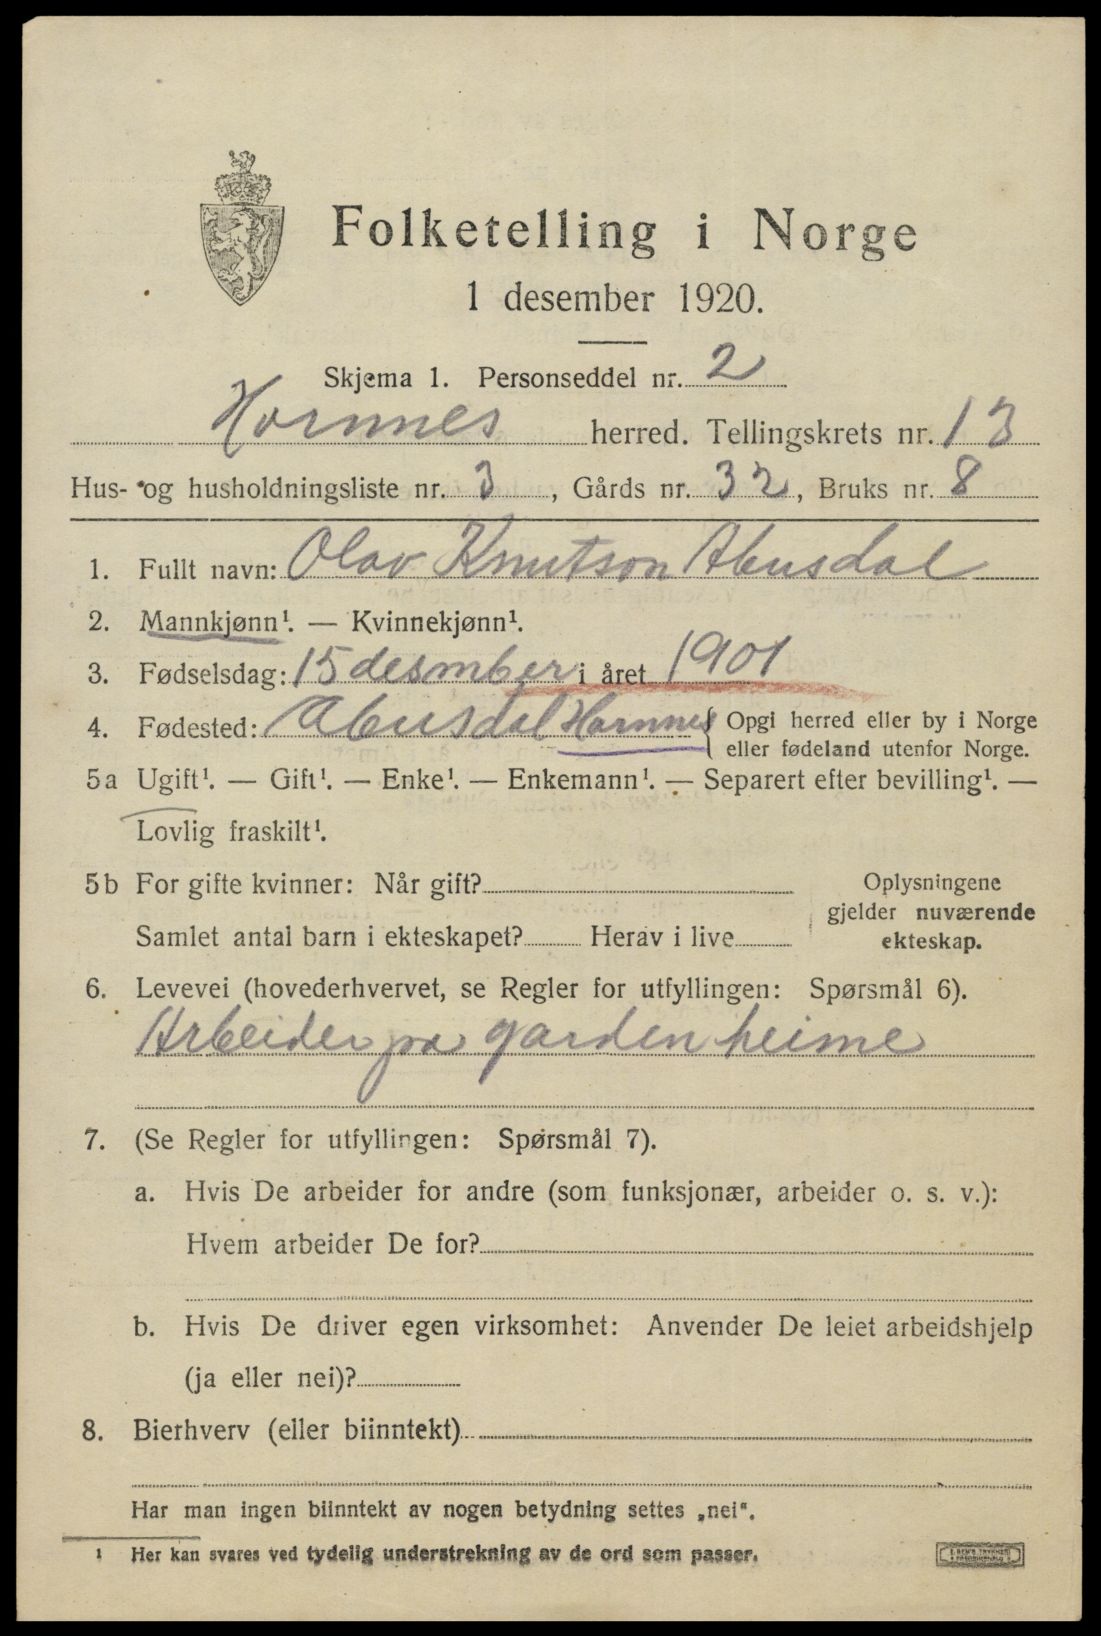 Folketelling i Norge
1 desember 1920.
Skjema 1. Personseddel nr. 2
Hornnes herred. Tellingskrets nr. 13
Hus- og husholdningsliste nr. 3, Gårds nr. 32, Bruks nr. 8
1. Fullt navn: Olav Knutson Abusdal
2. Mannkjønn¹. — Kvinnekjønn¹.
3. Fødselsdag: 15 desmber i året 1901
4. Fødested: Abusdal Hornnes { Opgi herred eller by i Norge
eller fødeland utenfor Norge.
5a Ugift¹. — Gift¹. — Enke¹. — Enkemann¹. — Separert efter bevilling¹. —
Lovlig fraskilt¹.
5b For gifte kvinner: Når gift?
Samlet antal barn i ekteskapet? Herav i live
Oplysningene
gjelder nuværende
ekteskap.
6. Levevei (hovederhvervet, se Regler for utfyllingen: Spørsmål 6).
Arbeider pa garden heime
7. (Se Regler for utfyllingen: Spørsmål 7).
a. Hvis De arbeider for andre (som funksjonær, arbeider o. s. v.):
Hvem arbeider De for?
b. Hvis De driver egen virksomhet: Anvender De leiet arbeidshjelp
(ja eller nei)?
8. Bierhverv (eller biinntekt)
Har man ingen biinntekt av nogen betydning settes „nei".
¹ Her kan svares ved tydelig understrekning av de ord som passer.